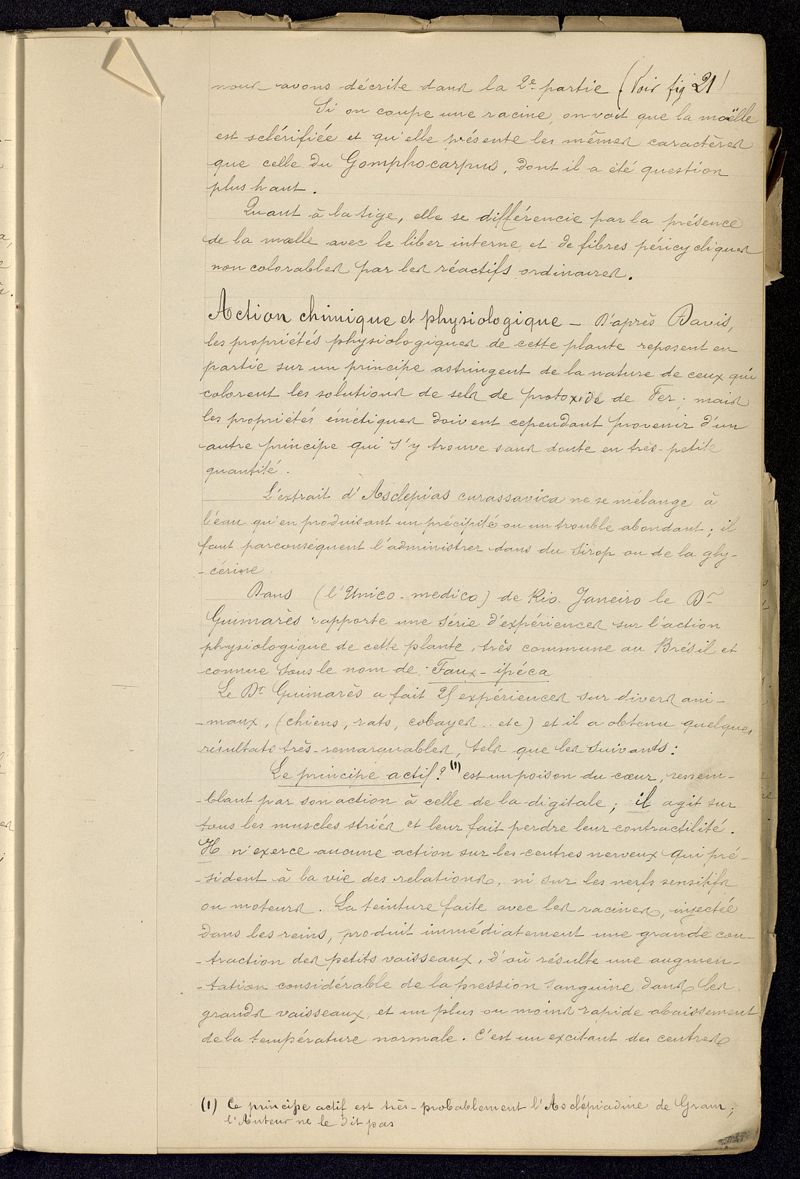 nous avons décrite dans la 2e partie (Voir fig 21)
Si on coupe une racine, on voit que la moëlle
est sclérifiée et qu'elle présente les mêmes caractères
que celle du Gomphocarpus, dont il a été question
plus haut.
Quant à la tige, elle se différencie par la présence
de la moelle avec le liber interne et de fibres péricycliques
non colorables par les réactifs ordinaires.
Action chimique et physiologique – D'après Davis,
les propriétés physiologiques de cette plante reposent en
partie sur un principe astringent de la nature de ceux qui
colorent les solutions de sels de protoxide de Fer; mais
les propriétés émétiques doivent cependant provenir d'un
autre principe qui s'y trouve sans doute en très-petite
quantité.
L'extrait d'Asclepias curassavica ne se mélange à
l'eau qu'en produisant un précipité ou un trouble abondant; il
faut parconséquent l'administrer dans du sirop ou de la gly-
-cérine.
Dans (l'Unico-medico) de Rio Janeiro le Dr
Guimarès rapporte une série d'expériences sur l'action
physiologique de cette plante, très commune au Brésil et
connue sous le nom de Faux-ipéca
Le Dr Guimarès a fait 25 expériences sur divers ani-
-maux, (chiens, rats, cobayes.. etc) et il a obtenu quelques
résultats très-remarquables, tels que les suivants:
Le principe actif? (1) est un poison du cœur, ressem-
-blant par son action à celle de la digitale; il agit sur
tous les muscles striés et leur fait perdre leur contractilité.
Il n'exerce aucune action sur les centres nerveux qui pré-
-sident à la vie des relations, ni sur les nerfs sensitifs
ou moteurs. La teinture faite avec les racines, injectée
dans les reins, produit immédiatement une grande con-
-traction des petits vaisseaux, d'où résulte une augmen-
-tation considérable de la pression sanguine dans les
grands vaisseaux et un plus ou moins rapide abaissement
de la température normale. C'est un excitant des centres
(1) Ce principe actif est très-probablement l'Asclépiadine de Gram;
l'Auteur ne le dit pas